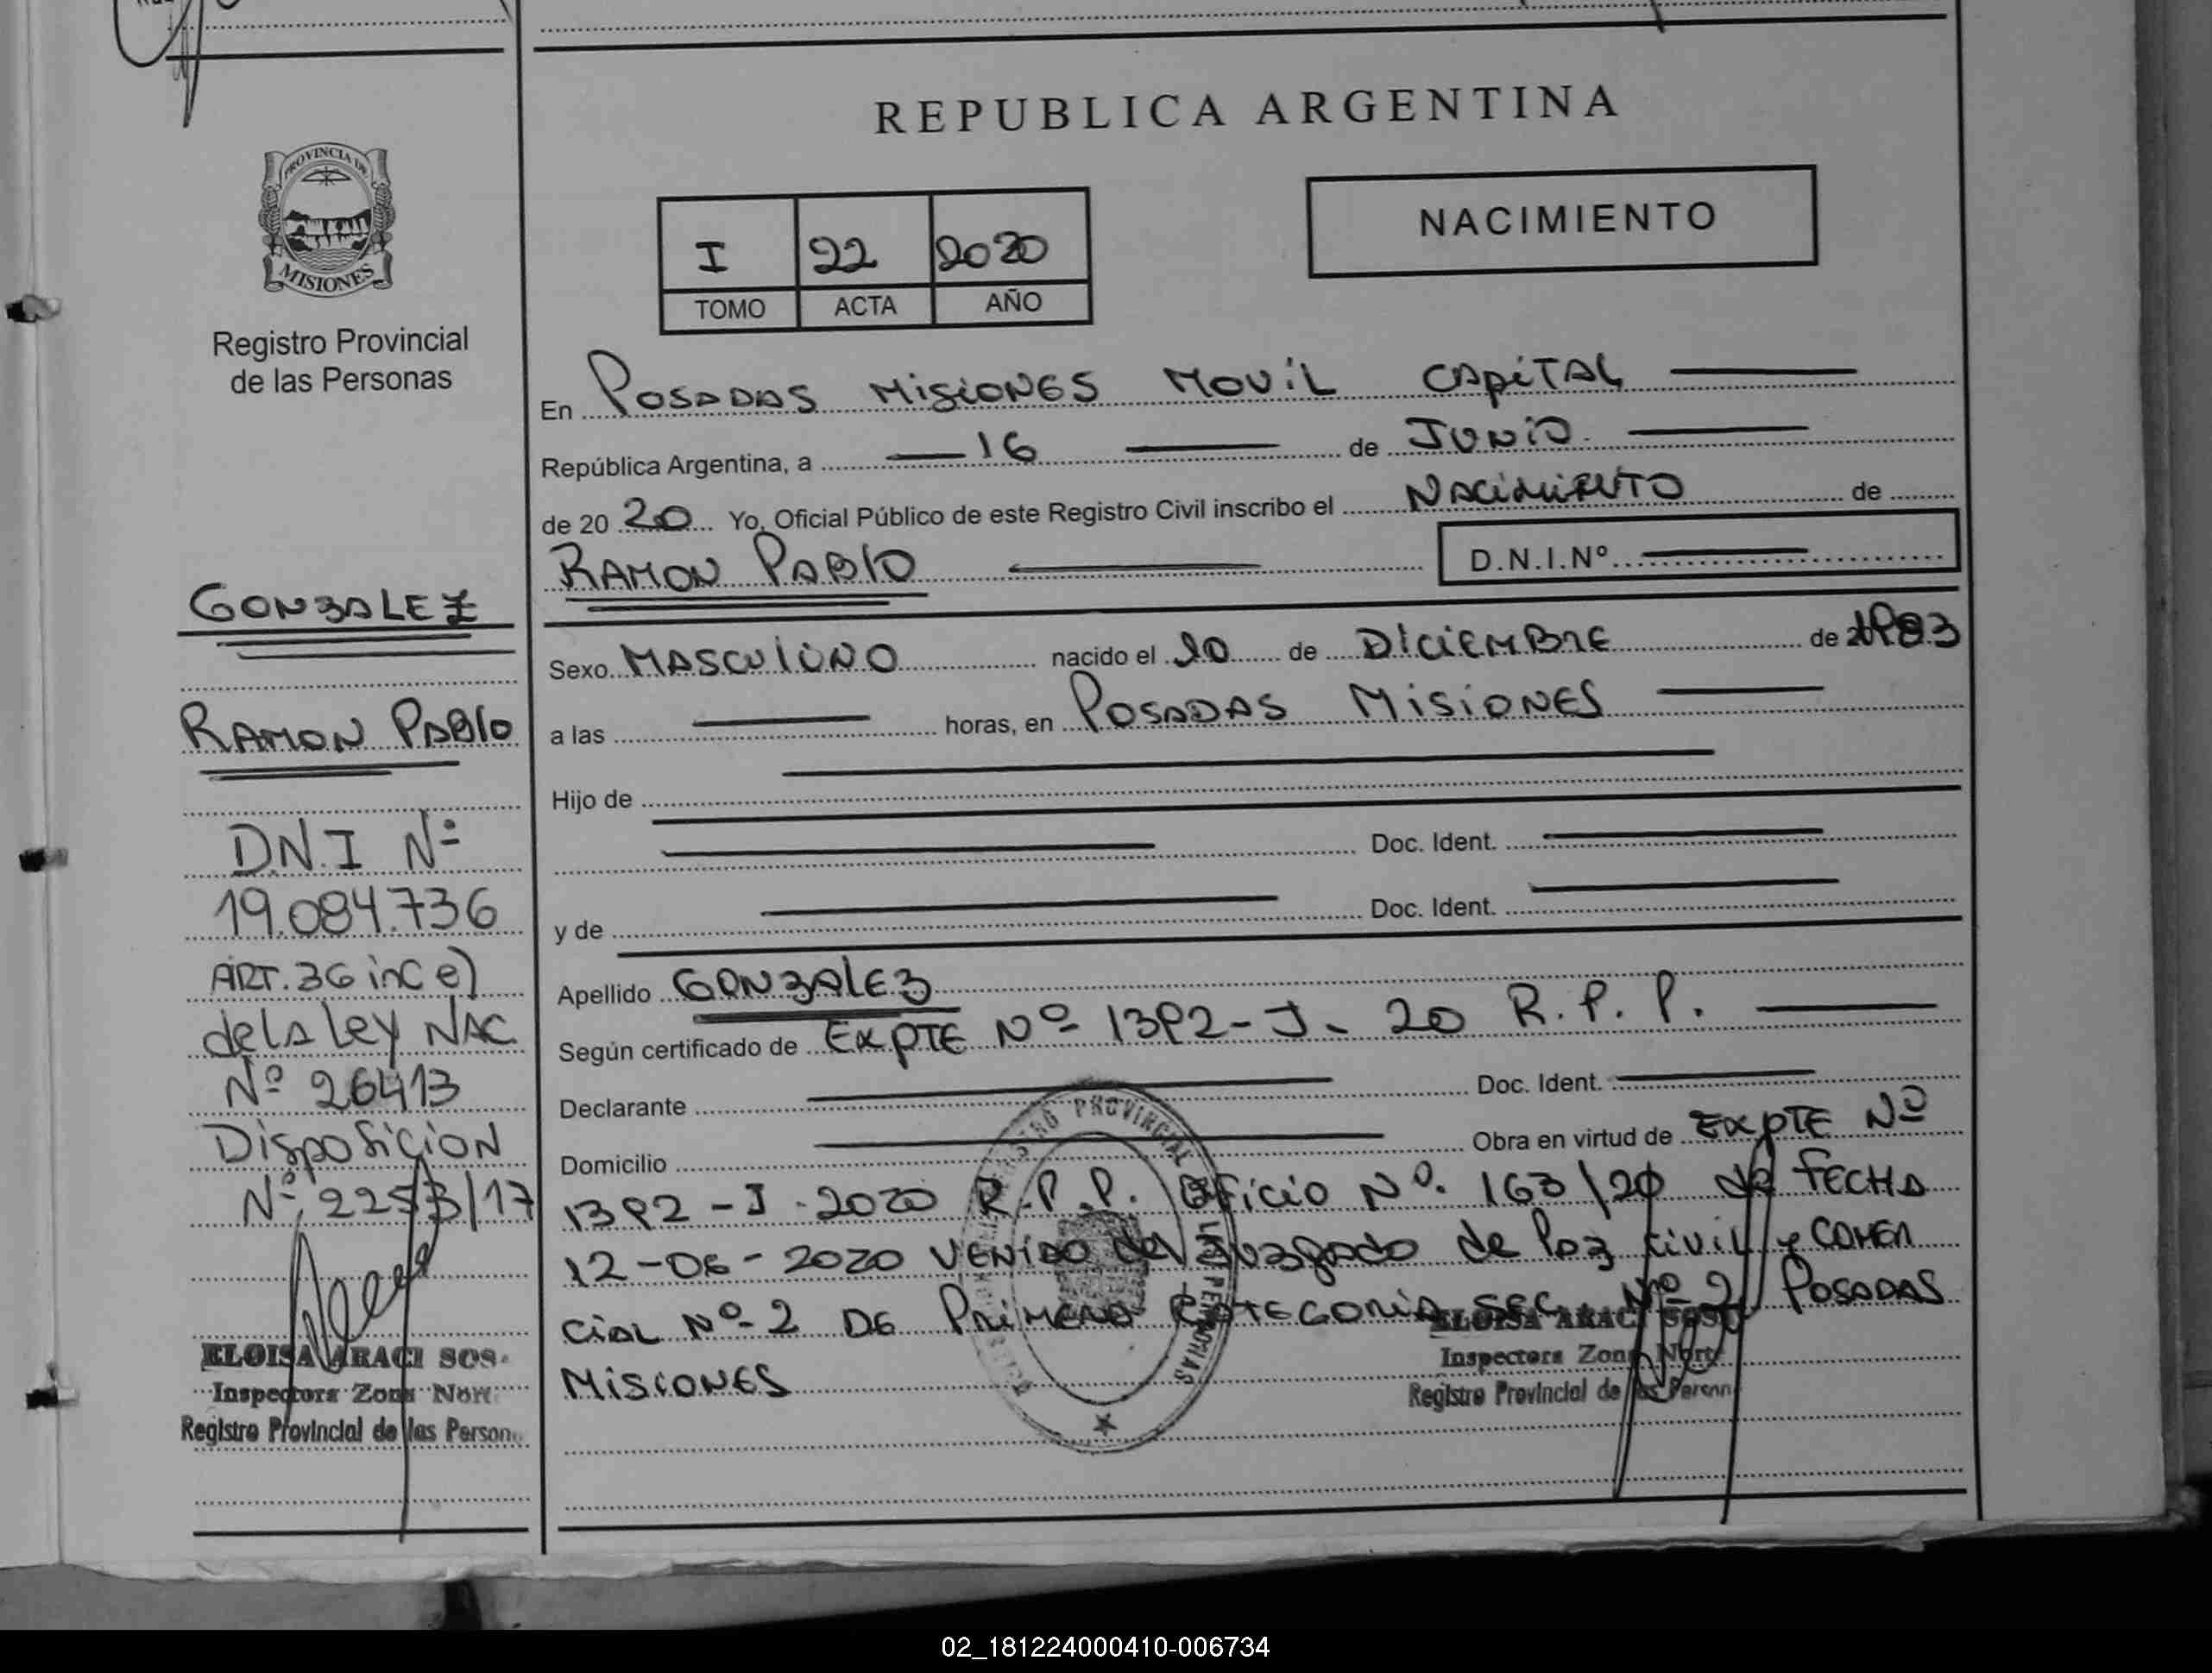 REPUBLICA ARGENTINA
PROVINCIA DE
MISIONES
Registro Provincial
de las Personas
I 22 2020
TOMO ACTA AÑO
NACIMIENTO
En POSADAS MISIONES MOVIL CAPITAL
República Argentina, a 16 de JUNIO
de 20 20 Yo, Oficial Público de este Registro Civil inscribo el NACIMIENTO de
RAMON PABLO D.N.I.Nº
Sexo MASCULINO nacido el 20 de DICIEMBRE de 1983
a las horas, en POSADAS MISIONES
Hijo de
Doc. Ident.
y de Doc. Ident.
Apellido GONZALEZ
Según certificado de EXPTE Nº 1392-J- 20 R.P.P.
Declarante Doc. Ident.
Domicilio Obra en virtud de EXPTE Nº
1392-J-2020 R.P.P. Oficio Nº. 163/20 de FECHA
12-06-2020 VENIDO del Juzgado de Paz civil y COMER
CIAL Nº 2 DE PRIMERA CATEGORIA SEC. Nº 2 POSADAS
MISIONES
GONZALEZ
RAMON PABLO
D.N.I Nº
19.084.736
ART. 36 inc e)
de la Ley NAC
Nº 26413
Disposicion
Nº 2253/17
ELOISA ARACI SOS
Inspectora Zona Nort
Registro Provincial de las Person
ELOISA ARACI SOS
Inspectora Zona Norte
Registro Provincial de las Person
REGISTRO PROVINCIAL DE LAS PERSONAS
02_181224000410-006734